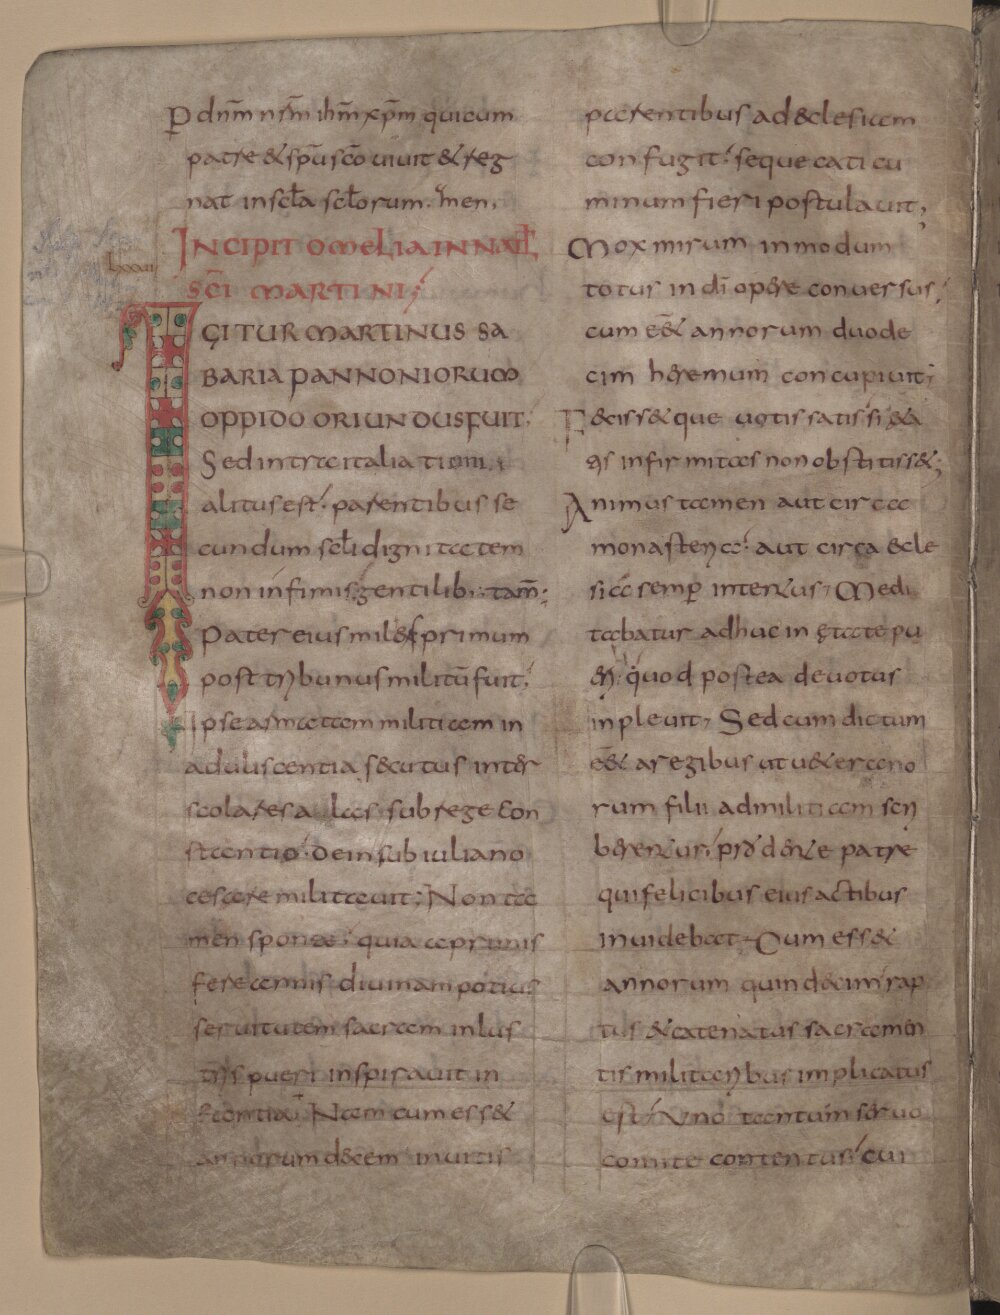 P dnm̄ nr̄m ihm̄ xp̄m quicum
patre & sp̄u sc̄o uiuit & reg
nat in scła scłorum. Amen.
INCIPIT OMELIA IN NATŁ
SC̄I MARTINI;
IGITUR MARTINUS SA
BARIA PANNONIORUM
OPPIDO ORIUNDUS FUIT.
Sed intra italia ticini
alitus est. parentibus se
cundum scłi dignitatem
non infimis. gentilib; tam̄;
Pater eius mil& primum
post tribunus militū fuit.
Ipse armatam militiam in
aduliscentia s&cutus inter
scolares alas. sub rege con
stantio. dein sub iuliano
cesare militauit; Non ta
men sponte. quia a primis
fere annis diuinam potius
seruitutem sacram inlus
tris pueri inspirauit in
fantia. Nam cum ess&
annorum decem inuitis
parentibus ad &clesiam
confugit. seque caticu
minum fieri postulauit.
Mox mirum inmodum
totus in dī opere conuersus.
cum e͞& annorum duode
cim heremum concupiuit;
F&ciss&que uotis satis si &a
tis infirmitas non obstitiss&;
Animus tamen aut circa
monasteria. aut circa &cle
sia semper intentus, Medi
tabatur adhuc in ętate pu
eri. quod postea deuotus
inpleuit, Sed cum dictum
e͞& a regibus ut u&erano
rum filii ad militiam scri
berentur. prod&nte patre
qui felicibus eius actibus
inuidebat. Cum ess&
annorum quindecim. rap
tus &catenatus sacramen
tis militaribus implicatus
est. Uno tantum seruo
comite contentus. cui